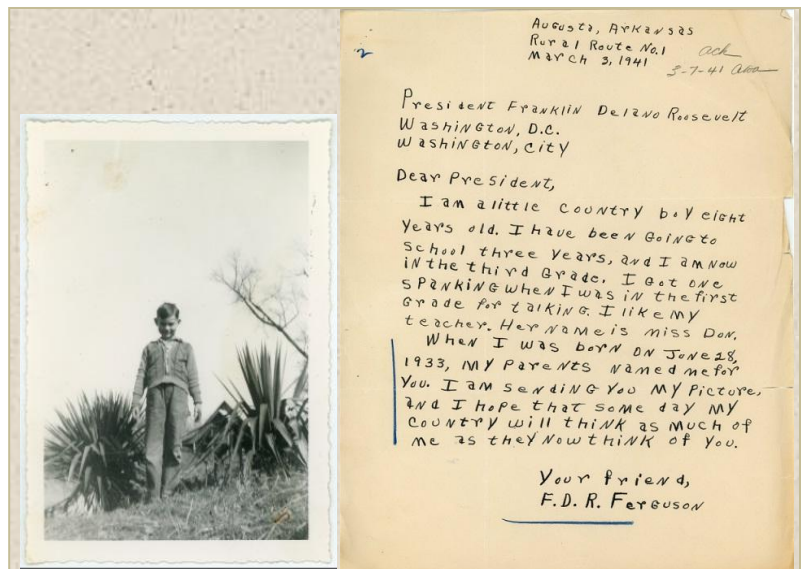 2
Augusta, Arkansas
Rural Route No.1
March 3, 1941
ack
3-7-41
President Franklin Delano Roosevelt
Washington, D.C.
Washington, City
Dear President,
I am a little country boy eight
years old. I have been going to
school three years, and I am now
in the third grade. I got one
spanking when I was in the first
grade for talking. I like my
teacher. Her name is miss Don.
When I was born on June 28,
1933, my parents named me for
you. I am sending you my picture,
and I hope that some day my
country will think as much of
me as they now think of you.
Your friend,
F.D.R. Ferguson